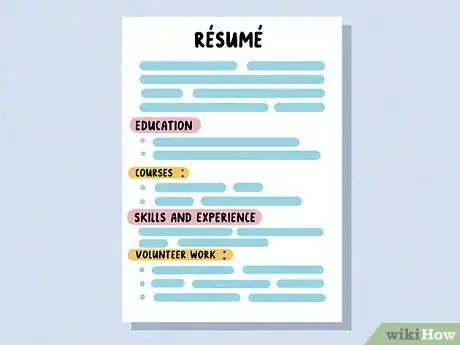 RÉSUMÉ
EDUCATION
COURSES :
SKILLS AND EXPERIENCE
VOLUNTEER WORK :
wikiHow